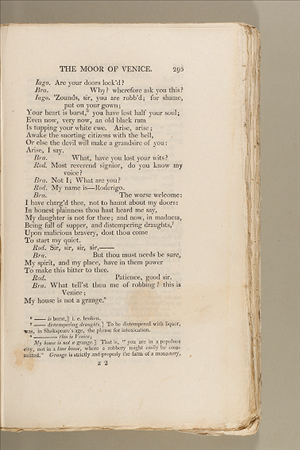 THE MOOR OF VENICE. 295
Iago. Are your doors lock'd?
Bra. Why? wherefore ask you this?
Iago. 'Zounds, sir, you are robb'd; for shame,
put on your gown;
Your heart is burst, you have lost half your soul;
Even now, very now, an old black ram
Is tupping your white ewe. Arise, arise;
Awake the snorting citizens with the bell,
Or else the devil will make a grandsire of you:
Arise, I say.
Bra. What, have you lost your wits?
Rod. Most reverend signior, do you know my
voice?
Bra. Not I; What are you?
Rod. My name is—Roderigo.
Bra. The worse welcome:
I have charg'd thee, not to haunt about my doors:
In honest plainness thou hast heard me say,
My daughter is not for thee; and now, in madness,
Being full of supper, and distempering draughts,
Upon malicious bravery, dost thou come
To start my quiet.
Rod. Sir, sir, sir, sir,——
Bra. But thou must needs be sure,
My spirit, and my place, have in them power
To make this bitter to thee.
Rod. Patience, good sir.
Bra. What tell'st thou me of robbing? this is
Venice;
My house is not a grange.
—— is burst,] i. e. broken.
—— distempering draughts,] To be distempered with liquor,
was, in Shakspeare's age, the phrase for intoxication.
—— this is Venice;
My house is not a grange.] That is, "you are in a populous
city, not in a lone house, where a robbery might easily be com-
mitted." Grange is strictly and properly the farm of a monastery,